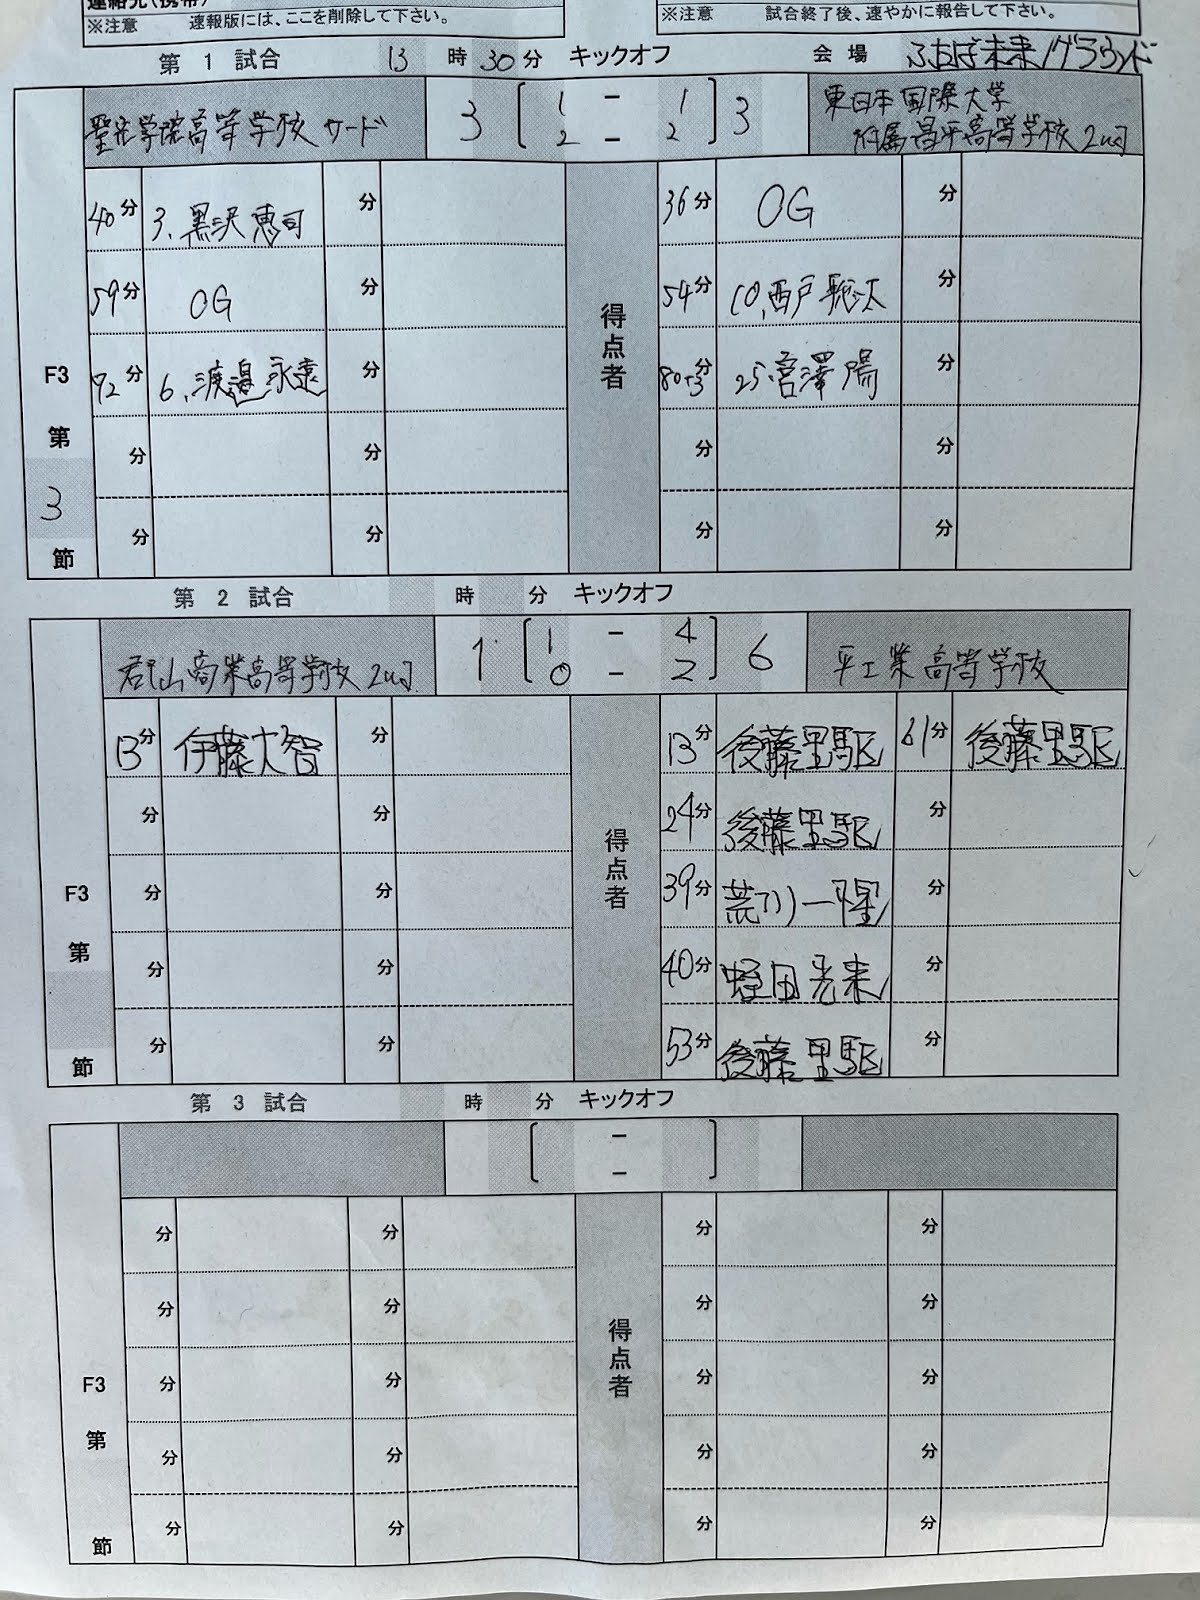 連絡先(携帯)
※注意 速報版には、ここを削除して下さい。
※注意 試合終了後、速やかに報告して下さい。
第 1 試合 13 時 30 分 キックオフ 会場 ふたば未来グラウンド
聖光学院高等学校サード 3 [ 1 - 1 2 - 2 ] 3 東日本国際大学
附属昌平高等学校2nd
40分 3. 黒沢恵司 分 36分 OG 分
59分 OG 分 54分 10.西戸聡汰 分
得点者
F3 第 3 節
72分 6.渡邉永遠 分 80+3分 25.宮澤陽 分
分 分 分 分
分 分 分 分
第 2 試合 時 分 キックオフ
郡山商業高等学校2nd 1 [ 1 - 4 0 - 2 ] 6 平工業高等学校
13分 伊藤大智 分 13分 後藤里駆 61分 後藤里駆
分 分 24分 後藤里駆 分
得点者
F3 第 節
分 分 39分 荒川一惺 分
分 分 40分 蛭田光来 分
分 分 53分 後藤里駆 分
第 3 試合 時 分 キックオフ
[ - - ]
分 分 分 分
分 分 分 分
得点者
F3 第 節
分 分 分 分
分 分 分 分
分 分 分 分